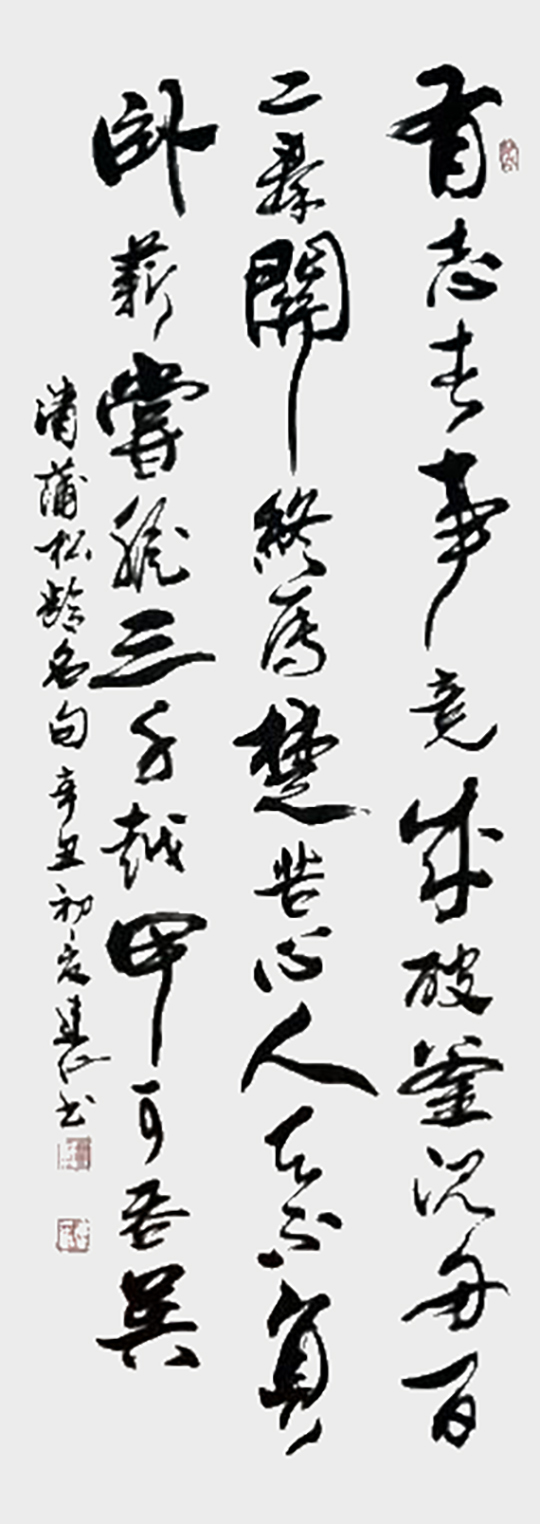 有志者事竟成破釜沉舟百
二秦關終屬楚苦心人天不負
臥薪嘗膽三千越甲可吞吳
清蒲松齡名句辛丑初夏建书